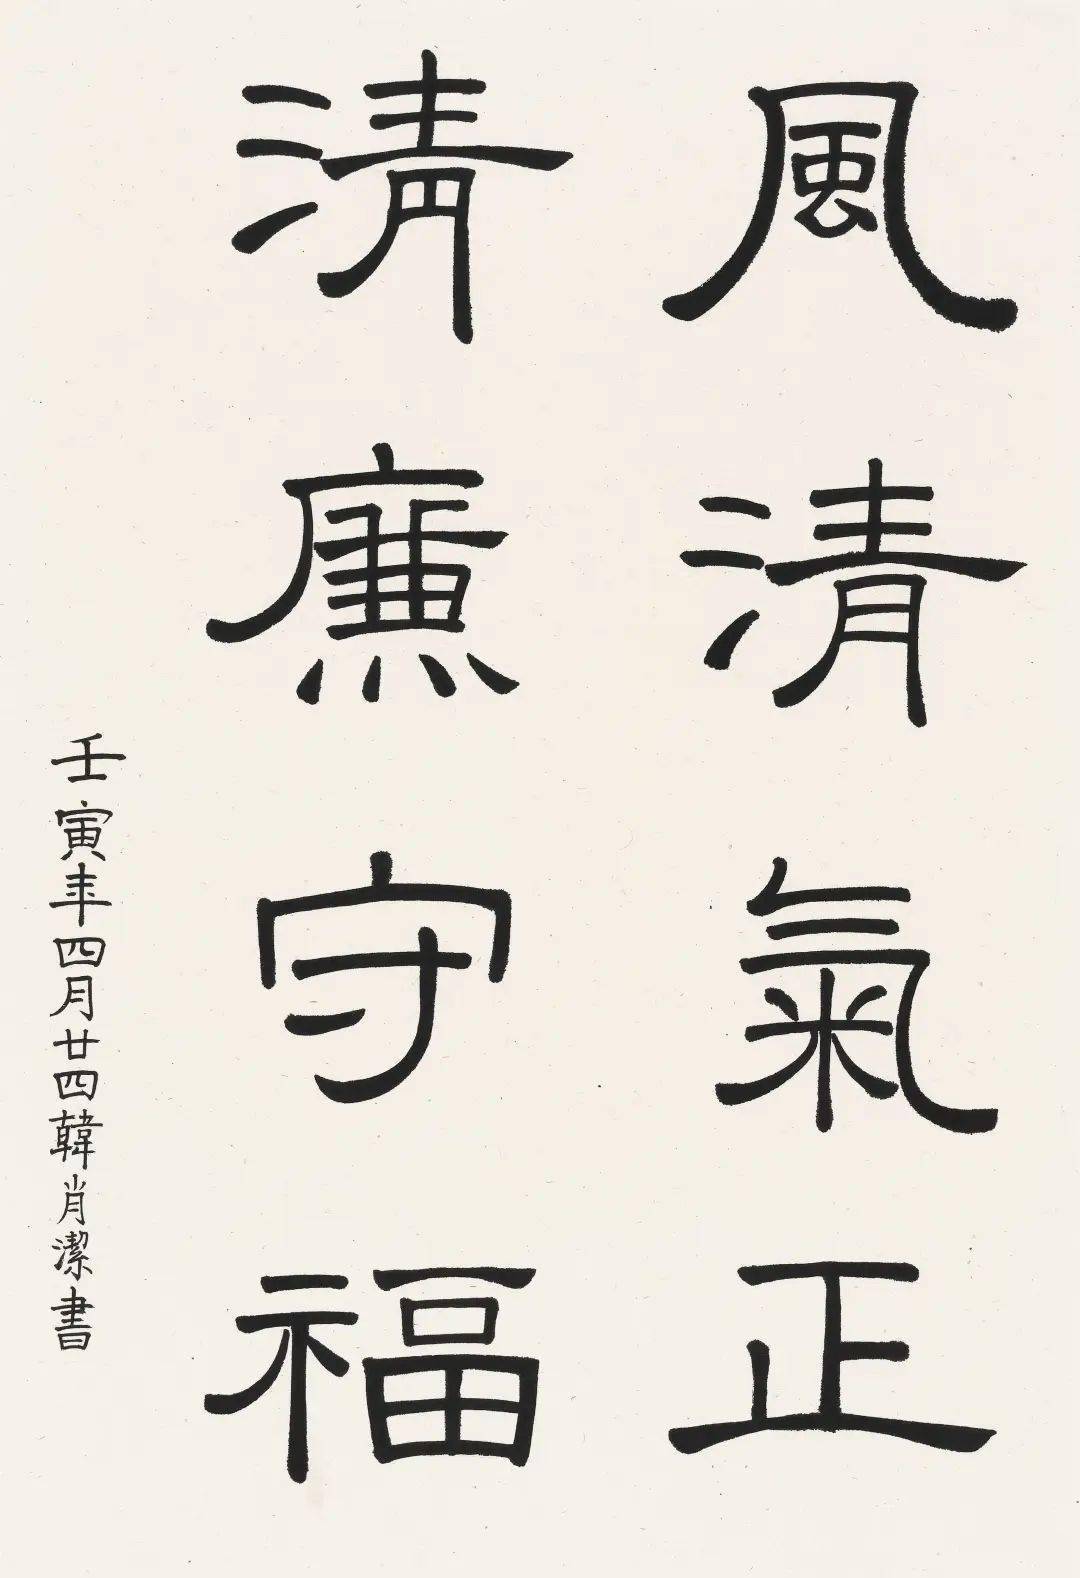 風清氣正
清廉守福
壬寅年四月廿四韓肖潔書